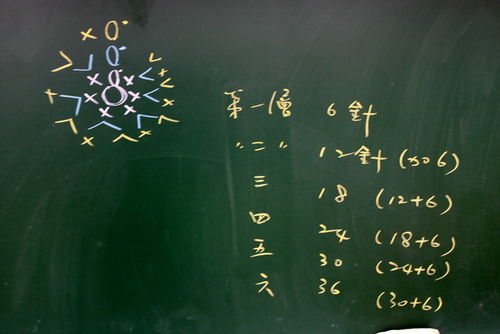 第一層 6針
〃二〃 12針 (加6)
三 18 (12+6)
四 24 (18+6)
五 30 (24+6)
六 36 (30+6)